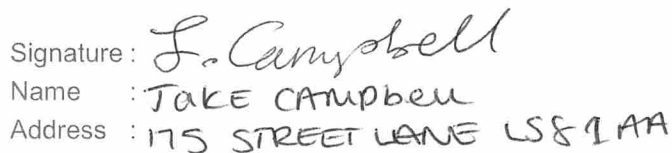 Signature : J. Campbell
Name : JaKE CAMPbell
Address : 175 STREET LANE LS8 1AA